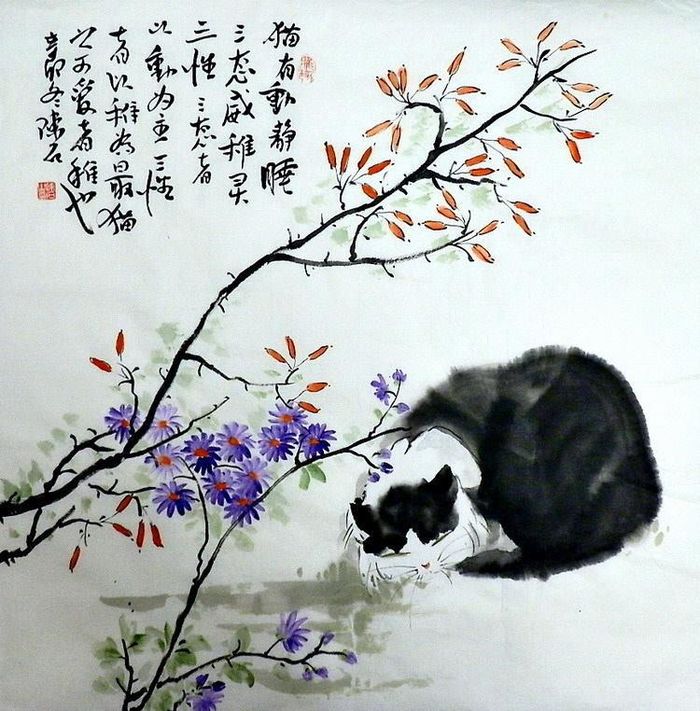 猫有動静睡
三态威稚灵
三性三态者
以動为主三性
者以稚为最猫
之可爱者稚也
辛卯冬陳石